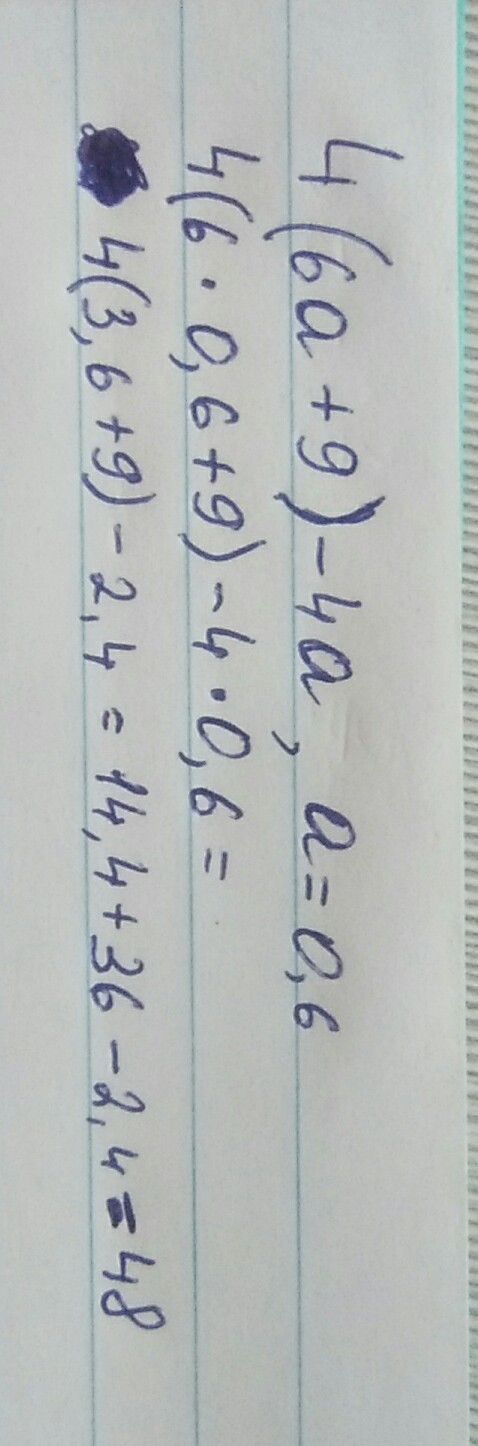 4(6a+9)-4a, a=0,6
4(6·0,6+9)-4·0,6=
4(3,6+9)-2,4=14,4+36-2,4=48